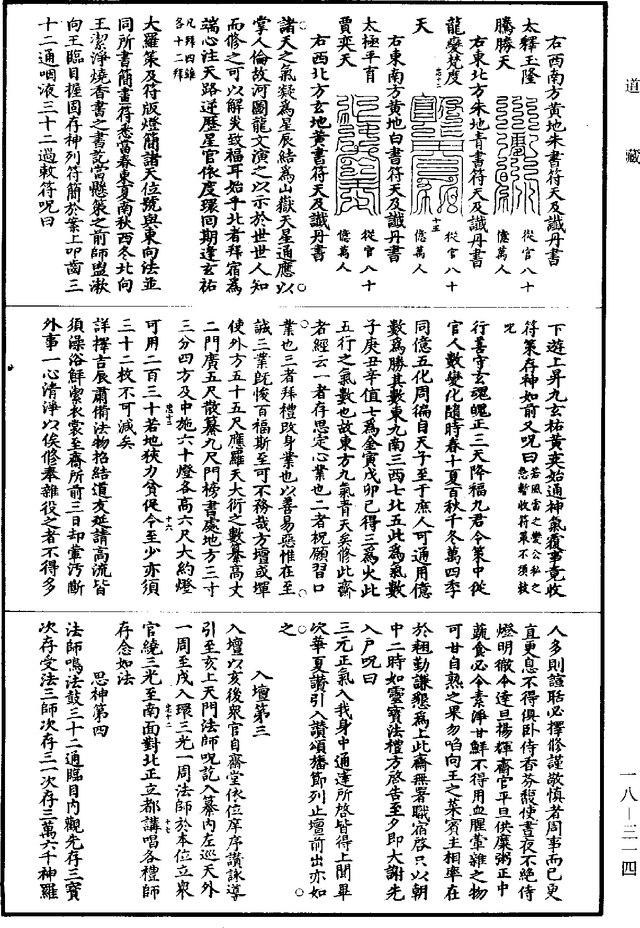 道藏
右西南方黄地朱書符天及讖丹書
太釋玉隆 從官八十
騰勝天 億萬人
右東北方朱地青書符天及讖丹書
龍變梵度 從官八十
天 億萬人
右東南方黄地白書符天及讖丹書
太極平育 從官八十
賈奕天 億萬人
右西北方玄地黄書符天及讖丹書
諸天之氣凝為星辰結為山嶽天星通應以
掌人倫故河圖龍文演之以示於世世人知
而修之可以解災致福耳始乎北者拜宿為
端心注天路逆歷星官依度環回期逢玄祐
凡拜四維
各十二拜
大羅策及符版燈簡諸天位號與東向法並
同所書簡畫符悉當春東夏南秋西冬北向
王潔淨燒香書之書訖當懸策之前師盟漱
向王臨目握固存神列符簡於案上叩齒三
十二通咽液三十二過敕符呪曰
下遊上昇九玄祐黄奕始通神氣覆事竟收
符策存神如前又呪曰若風雷之變公私之急暫收符策不須技
呪
行善守玄魂魄正三天降福九君令策中從
官人數變化隨時春十夏百秋千冬萬四季
同億五化周徧自天子至于庶人可通用億
數為勝其數東九南三西七北五此為氣數
子庚丑辛值七為金寅戊卯己得三為火此
五行之氣數也故東方九氣青天矣修此齋
者經云一者存思定心業也二者祝願習口
業也三者拜禮改身業也以善易惡惟在至
誠三業既悛百福斯至可不務哉方壇或墠
使外方五十五尺應羅天大衍之數纂高丈
二門廣五尺散纂九尺門榜書處地方三寸
三分四方及中施六十燈各高六尺大約燈
可用二百三十若地狹力貧促令至少亦須
三十二枚不可減矣
詳擇吉辰肅備法物招結道友延請高流皆
須澡浴鮮潔衣裳至齋所前三日却葷污斷
外事一心清淨以俟修奉雜役之者不得多
人多則諠聒必擇修謹敬慎者周事而已更
直更息不得俱卧侍香芬馥使晝夜不絕侍
燈明徹令達旦揚輝齋官平旦供糜粥正中
蔬食必令素淨甘鮮不得用血腥葷雜之物
可甘自熟之果勿啗向王之菜賓主相率在
於粗勤謙懇為上此齋無署職宿啓只以朝
中二時如靈寶法禮方啓告至夕即大謝先
入户呪曰
三元正氣入我身中通達所啓皆得上聞畢
次華夏讚引入讚頌旛節列止壇前出亦如
之
入壇第三
入壇以亥後衆官自齋堂依位庠序讚詠導
引至亥上天門法師呪訖入纂内左巡天外
一周至戌入環三光一周法師於本位立衆
官繞三光至南面對北正立都講唱各禮師
存念如法
思神第四
法師鳴法鼓三十二通臨目内觀先存三寳
次存受法三師次存三一次存三萬六千神羅
一八—三一四